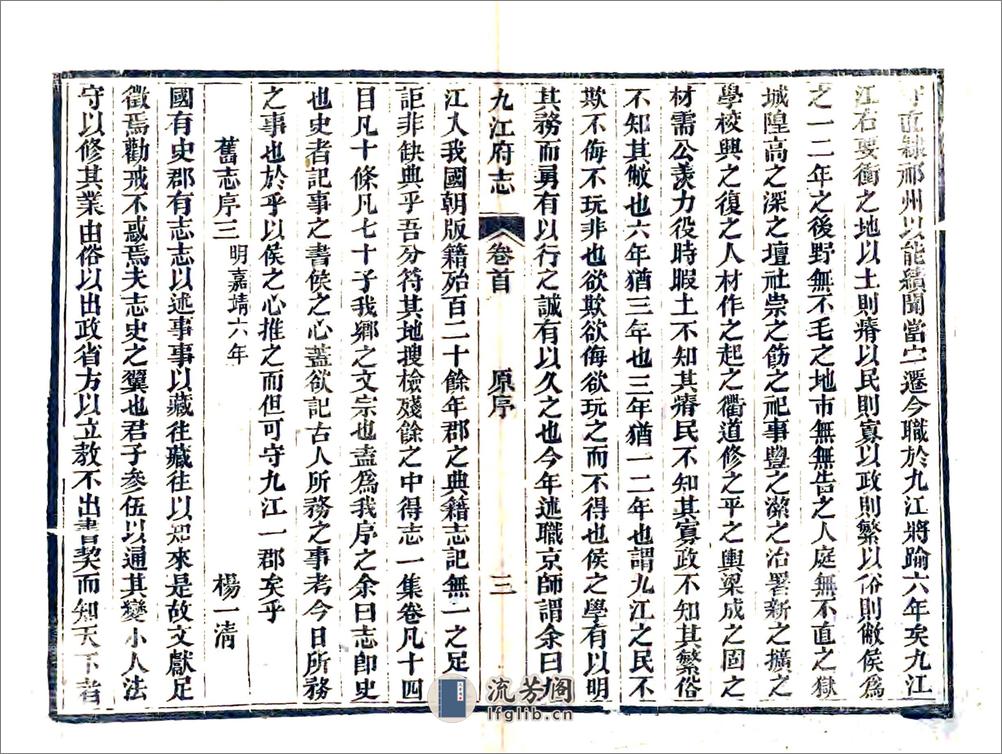 守直隸祁州以能績聞當宁遷今職於九江將踰六年矣九江
江右要衝之地以土則瘠以民則寡以政則繁以俗則敝侯為
之一二年之後野無不毛之地市無無告之人庭無不直之獄
城隍高之深之壇社崇之飭之祀事豐之潔之治署新之擴之
學校興之復之人材作之起之衢道修之平之輿梁成之固之
材需公羨力役時暇土不知其瘠民不知其寡政不知其繁俗
不知其敝也六年猶三年也三年猶一二年也謂九江之民不
欺不侮不玩非也欲欺欲侮欲玩之而不得也侯之學有以明
其務而勇有以行之誠有以久之也今年述職京師謂余曰九
九江府志
卷首
原序
三
江入我國朝版籍殆百二十餘年郡之典籍志記無一之足
詎非缺典乎吾分符其地搜檢殘餘之中得志一集卷凡十四
目凡十條凡七十子我鄉之文宗也盍為我序之余曰志即史
也史者記事之書侯之心蓋欲記古人所務之事考今日所務
之事也於乎以侯之心推之而但可守九江一郡矣乎
舊志序三
明嘉靖六年
楊一清
國有史郡有志志以述事事以藏往藏往以知來是故文獻足
徵焉勸戒不惑焉夫志史之翼也君子參伍以通其變小人法
守以修其業由俗以出政省方以立教不出書契而知天下者
流芳閣
lfglib.cn